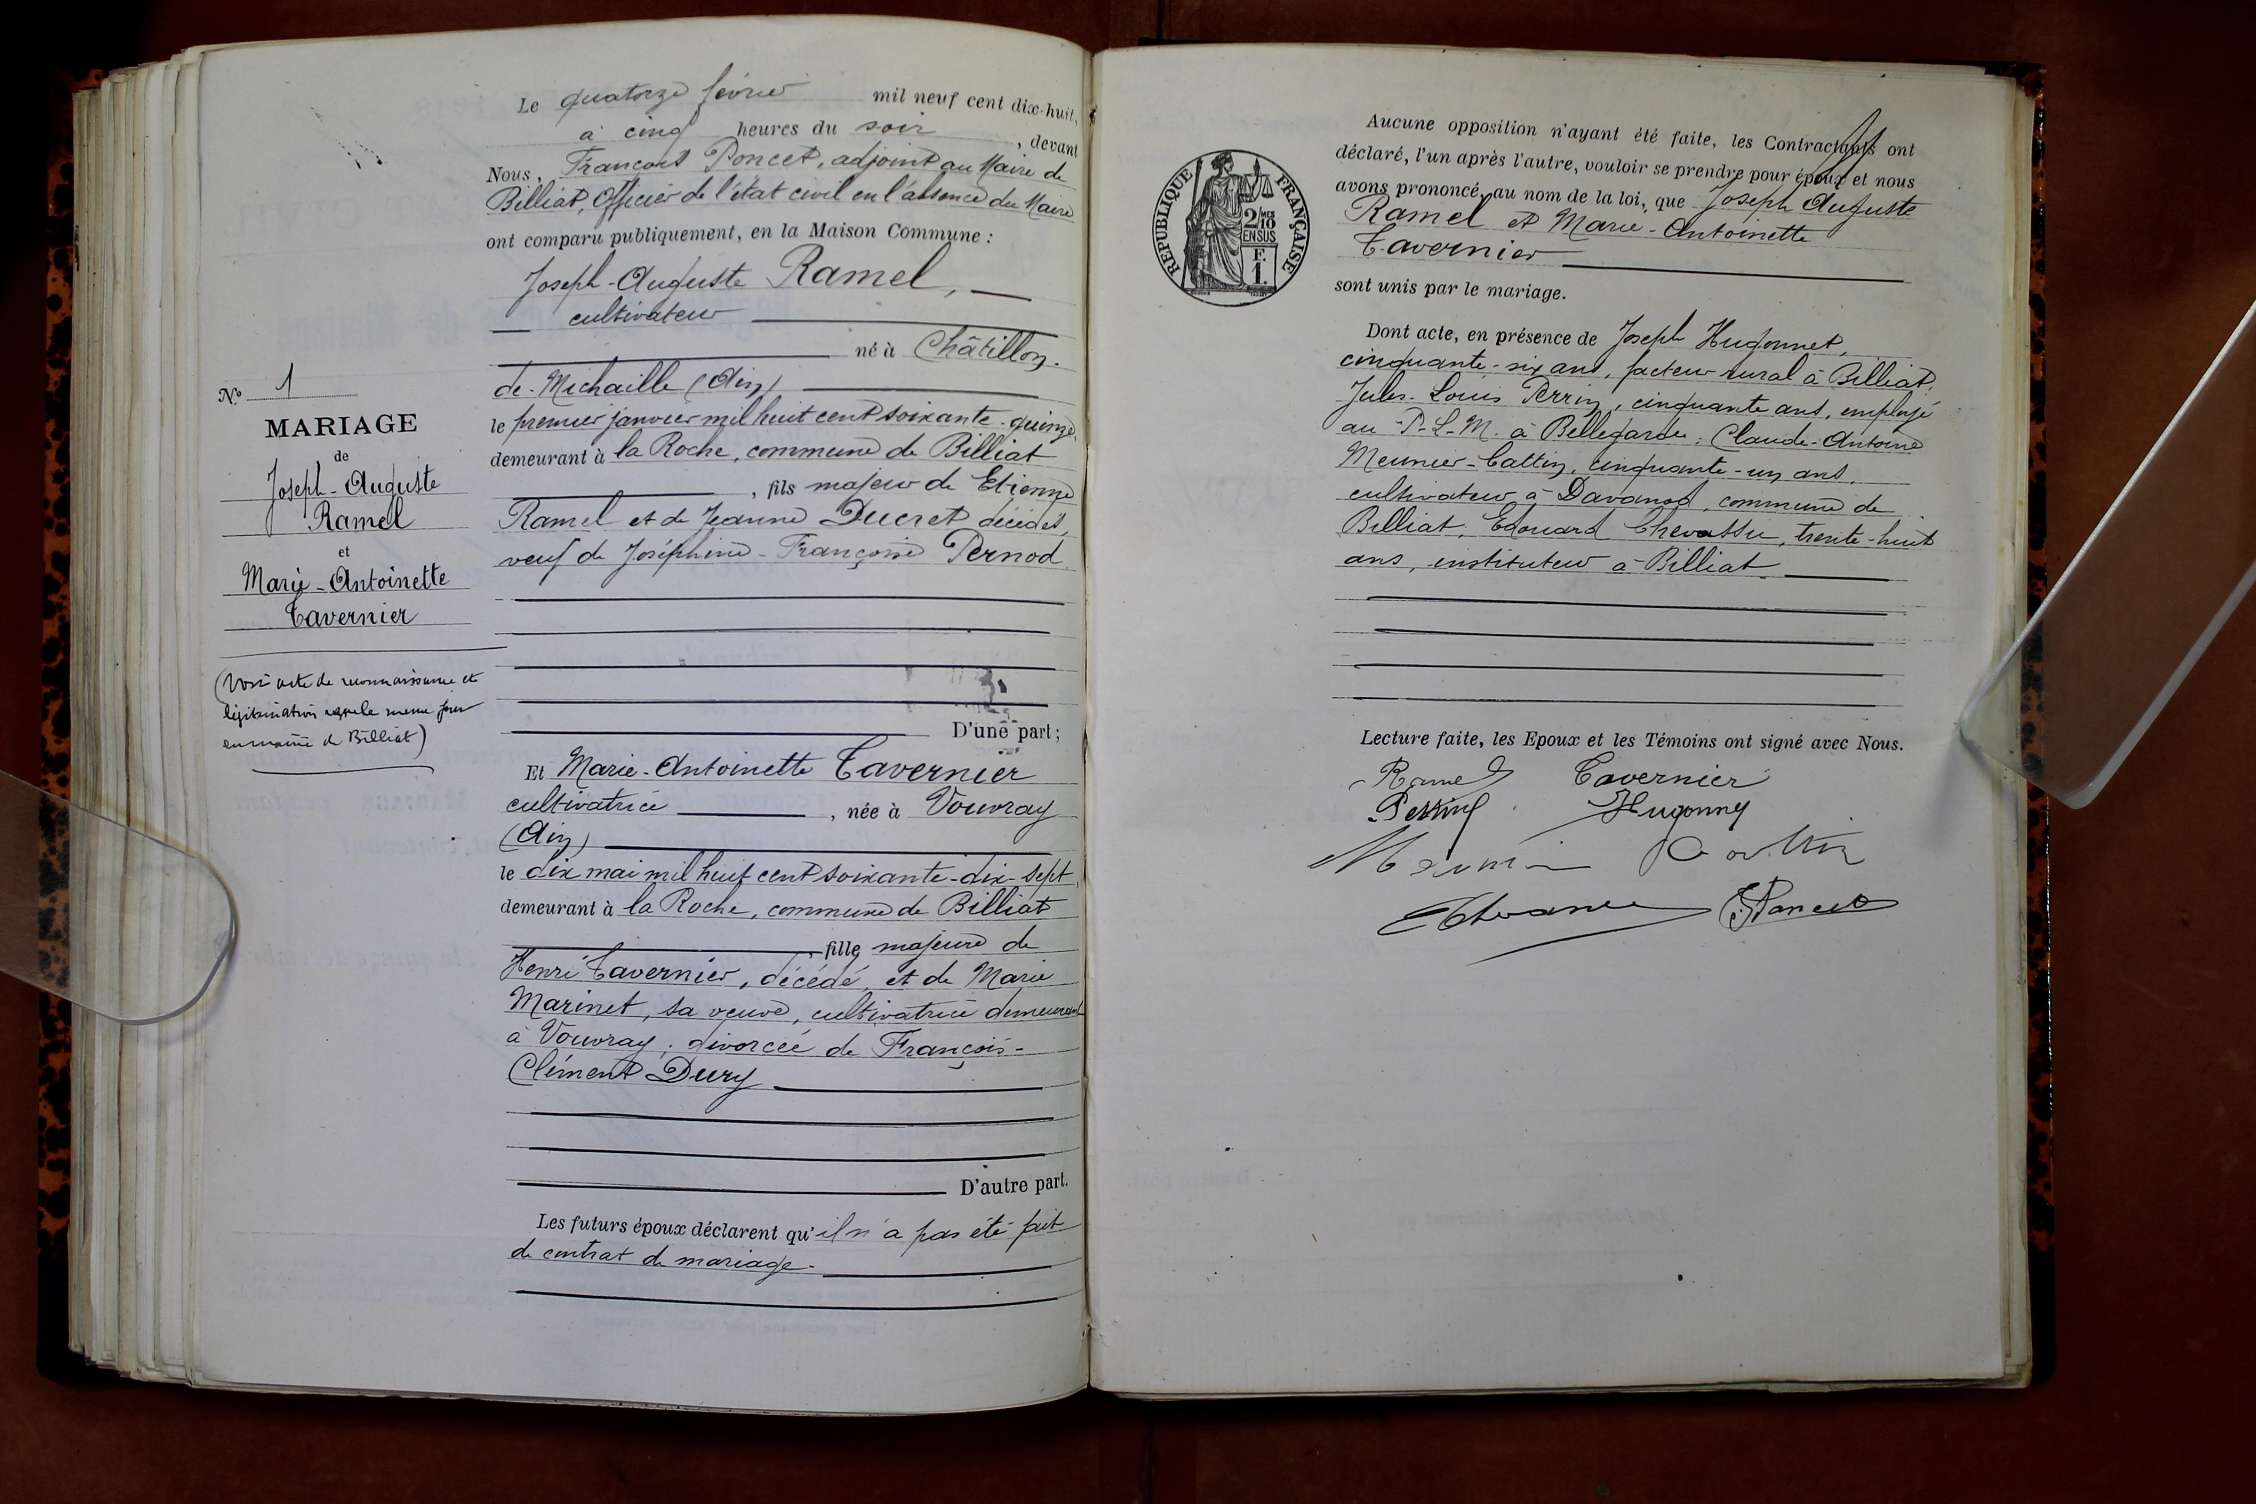 Le quatorze février mil neuf cent dix-huit,
à cinq heures du soir, devant
Nous, François Poncet, adjoint au Maire de
Billiat, Officier de l'état civil en l'absence du Maire
ont comparu publiquement, en la Maison Commune :
Joseph-Auguste Ramel,
cultivateur
né à Châtillon-
de-Michaille (Ain)
le premier janvier mil huit cent soixante-quinze,
demeurant à la Roche, commune de Billiat
, fils majeur de Etienne
Ramel et de Jeanne Ducret décédés,
veuf de Joséphine-Françoise Pernod
D'une part ;
N° 1
MARIAGE
de
Joseph-Auguste
Ramel
et
Marie-Antoinette
Tavernier
(Voir acte de reconnaissance et
légitimation le même jour
en mairie de Billiat)
Et Marie-Antoinette Tavernier
cultivatrice, née à Vouvray
(Ain)
le dix mai mil huit cent soixante-dix-sept,
demeurant à la Roche, commune de Billiat
, fille majeure de
Henri Tavernier, décédé, et de Marie
Marinet, sa veuve, cultivatrice demeurant
à Vouvray ; divorcée de François-
Clément Dury
D'autre part.
Les futurs époux déclarent qu'il n'a pas été fait
de contrat de mariage.
RÉPUBLIQUE FRANÇAISE
2/10 MES
EN SUS
F.
1.
Aucune opposition n'ayant été faite, les Contractants ont
déclaré, l'un après l'autre, vouloir se prendre pour époux et nous
avons prononcé, au nom de la loi, que Joseph Auguste
Ramel et Marie-Antoinette
Tavernier
sont unis par le mariage.
Dont acte, en présence de Joseph Hugonnet,
cinquante-six ans, facteur rural à Billiat,
Jules-Louis Perrin, cinquante ans, employé
au P-L-M. à Bellegarde ; Claude-Antoine
Meunier-Cattin, cinquante-un ans,
cultivateur à Davanod, commune de
Billiat, Edouard Chevassu, trente-huit
ans, instituteur à Billiat.
Lecture faite, les Epoux et les Témoins ont signé avec Nous.
Ramel Tavernier
Perrin Hugonnet
Meunier Cattin
Poncet